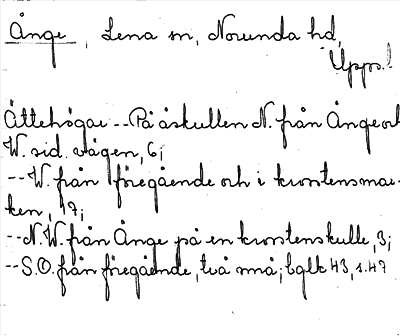 Ånge, Lena sn, Norunda hd,
Uppl.
Ättehögar -- På åskullen N. från Ånge och
W. sid. vägen, 6;
-- W. från föregående och i krorstensmar-
ken, 17;
-- N.W. från Ånge på en krorstenskulle, 3;
-- S.O. från föregående, två små; bglk 43, s. 47